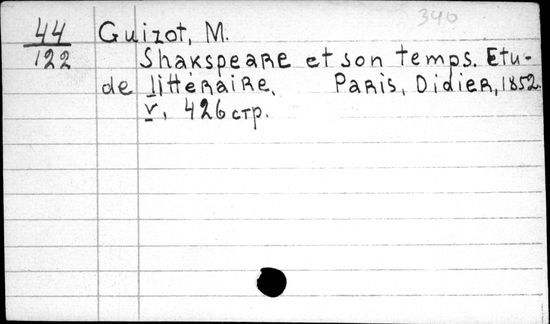 340
44 Guizot, M.
122 Shakspeare et son temps. Etu-
de littéraire. Paris, Didier, 1852.
v, 426 стр.